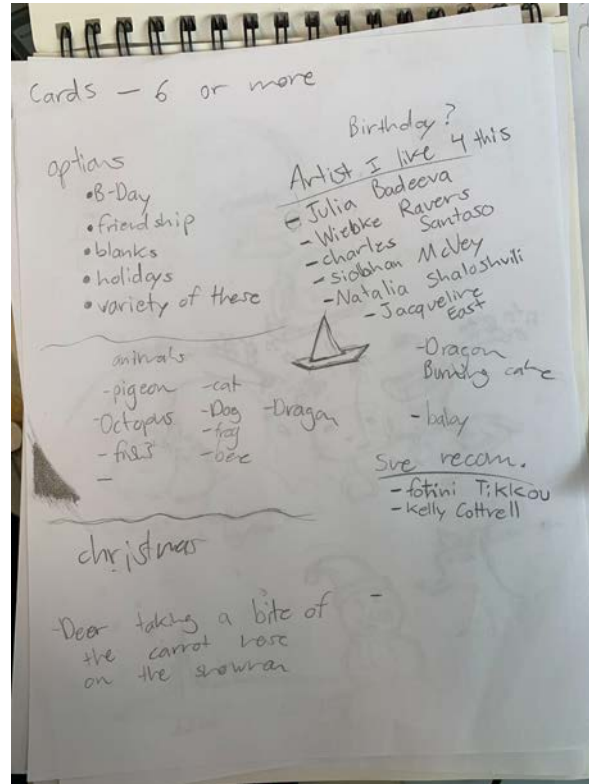 Cards — 6 or more
options
• B-Day
• friendship
• blanks
• holidays
• variety of these
Birthday?
Artist I like 4 this
- Julia Badeeva
- Wiebke Ravers
- charles Santaso
- siolbhan McVey
- Natalia Shaloshvili
- Jacqueline
East
animals
- pigeon - cat
- Octopus - Dog - Dragon
- frog
-
- Dragon
Burning cake
- baby
Sve recom.
- fotini Tikkou
- Kelly Cottrell
christmas
- Deer taking a bite of
the carrot nose
on the snowman
-